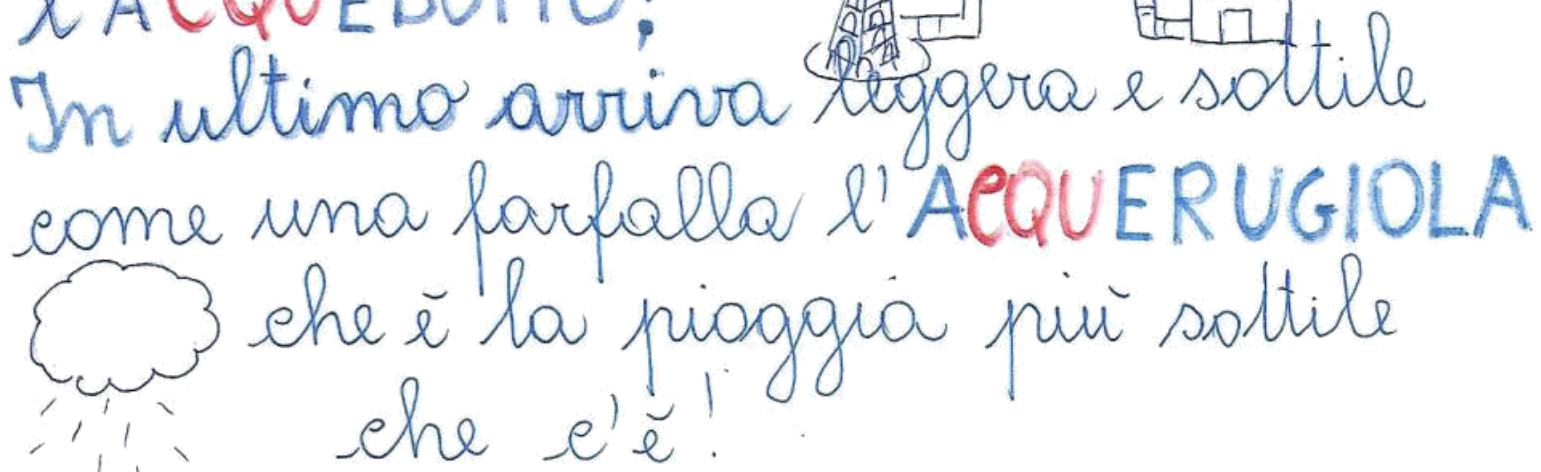 In ultimo arriva leggera e sottile
come una farfalla l'ACQUERUGIOLA
che è la pioggia più sottile
che c'è!